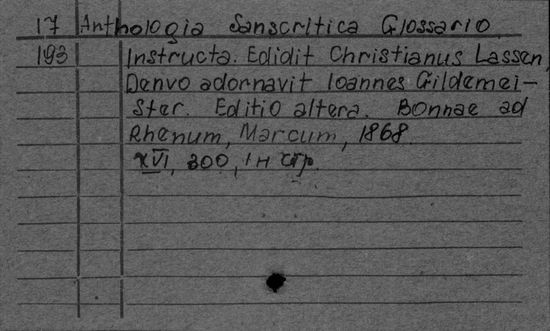 17 Anthologia Sanscritica Glossario
193 Instructa. Edidit Christianus Lassen,
Denvo adornavit Ioannes Gildemei-
ster. Editio altera. Bonnae ad
Rhenum, Marcum, 1868.
XVI, 300, 1н стр.